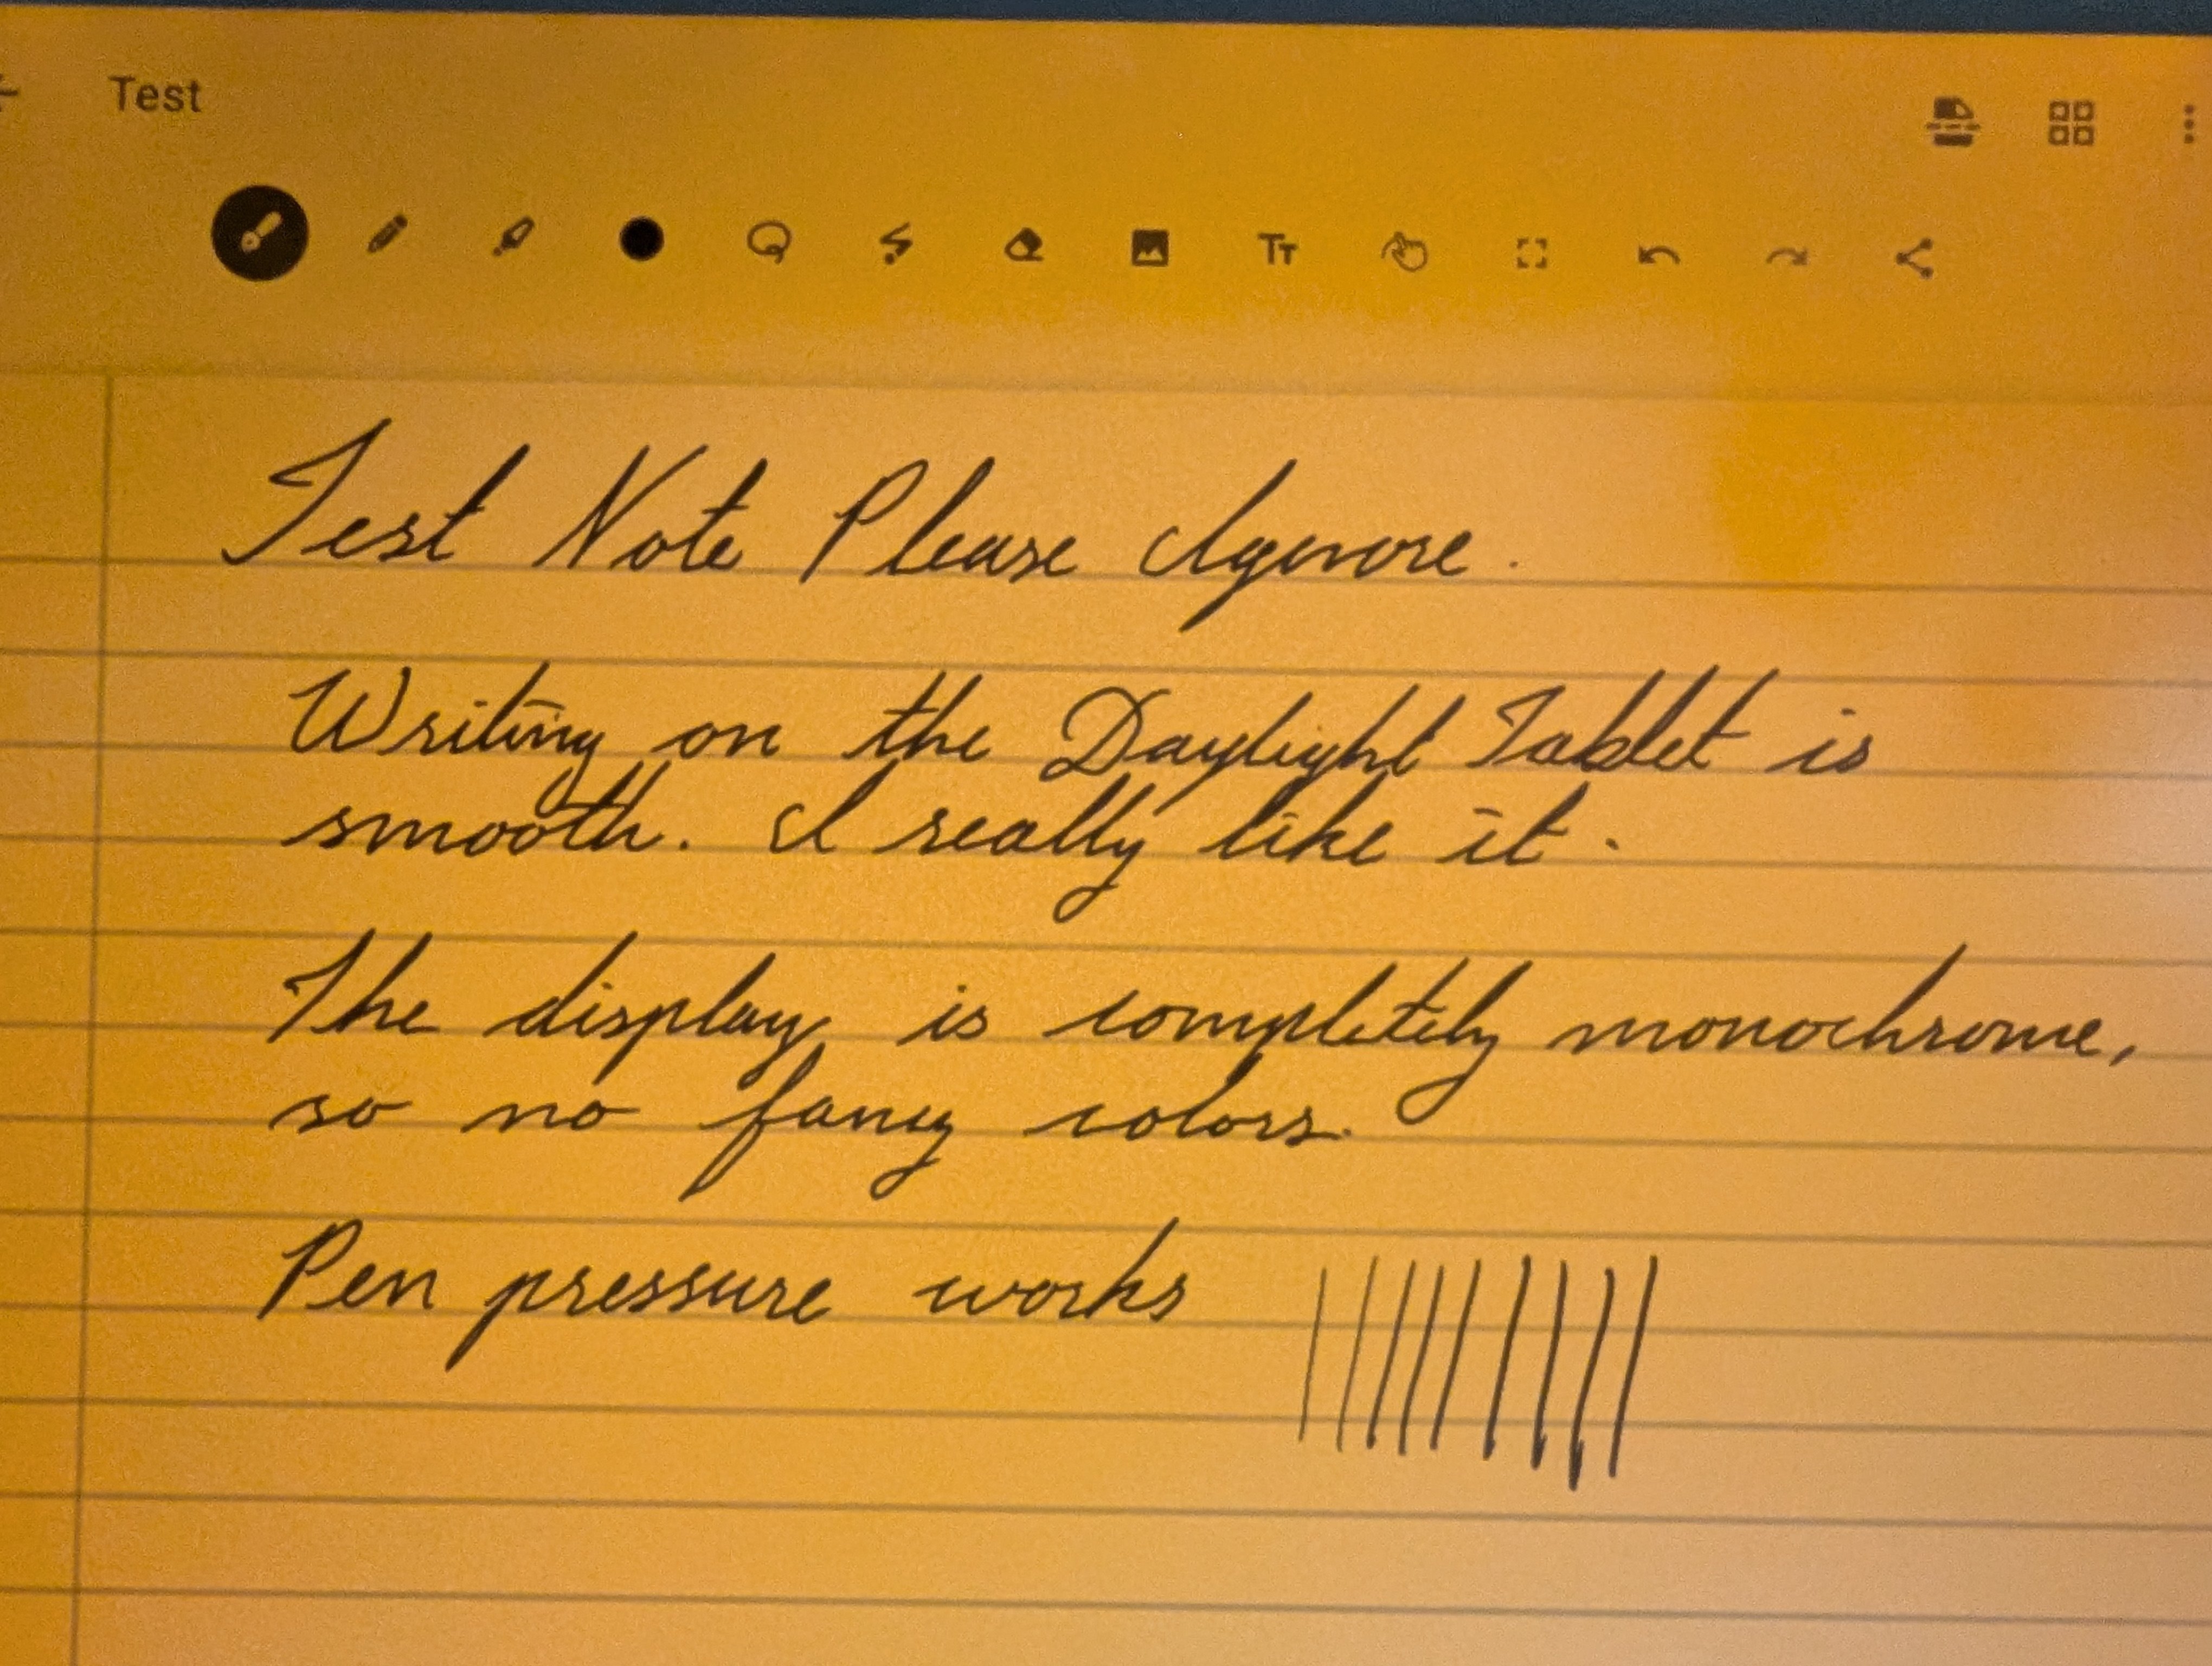 Test
Test Note Please Ignore.
Writing on the Daylight Tablet is
smooth. I really like it.
The display is completely monochrome,
so no fancy colors.
Pen pressure works